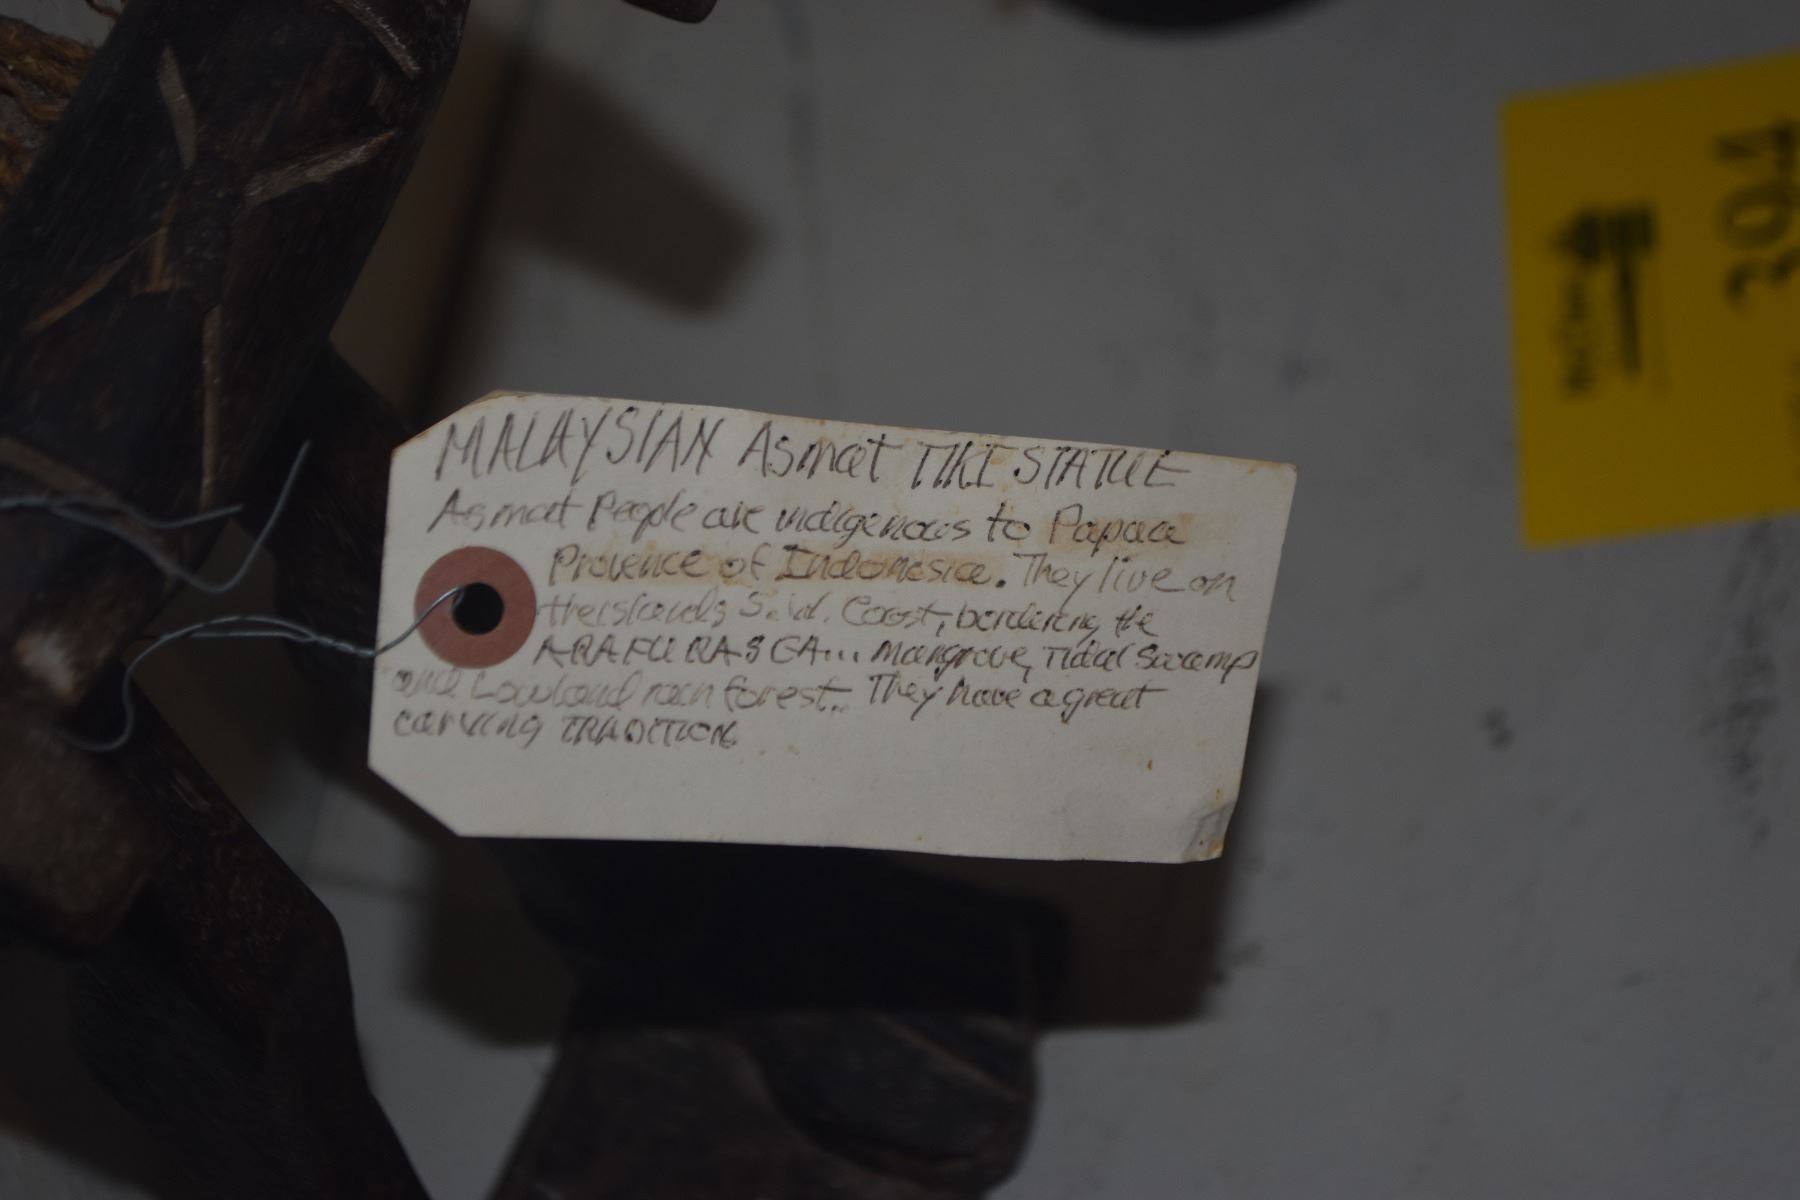 MALAYSIAN Asmat TIKI STATUE
Asmat People are indigenous to Papaa
Provence of Indonesia. They live on
the islands S.W. Coast, bordering the
ARAFURA SEA... Mangrove, Tidal Swamp
and Lowland rain forest. They have a great
carving TRADITION